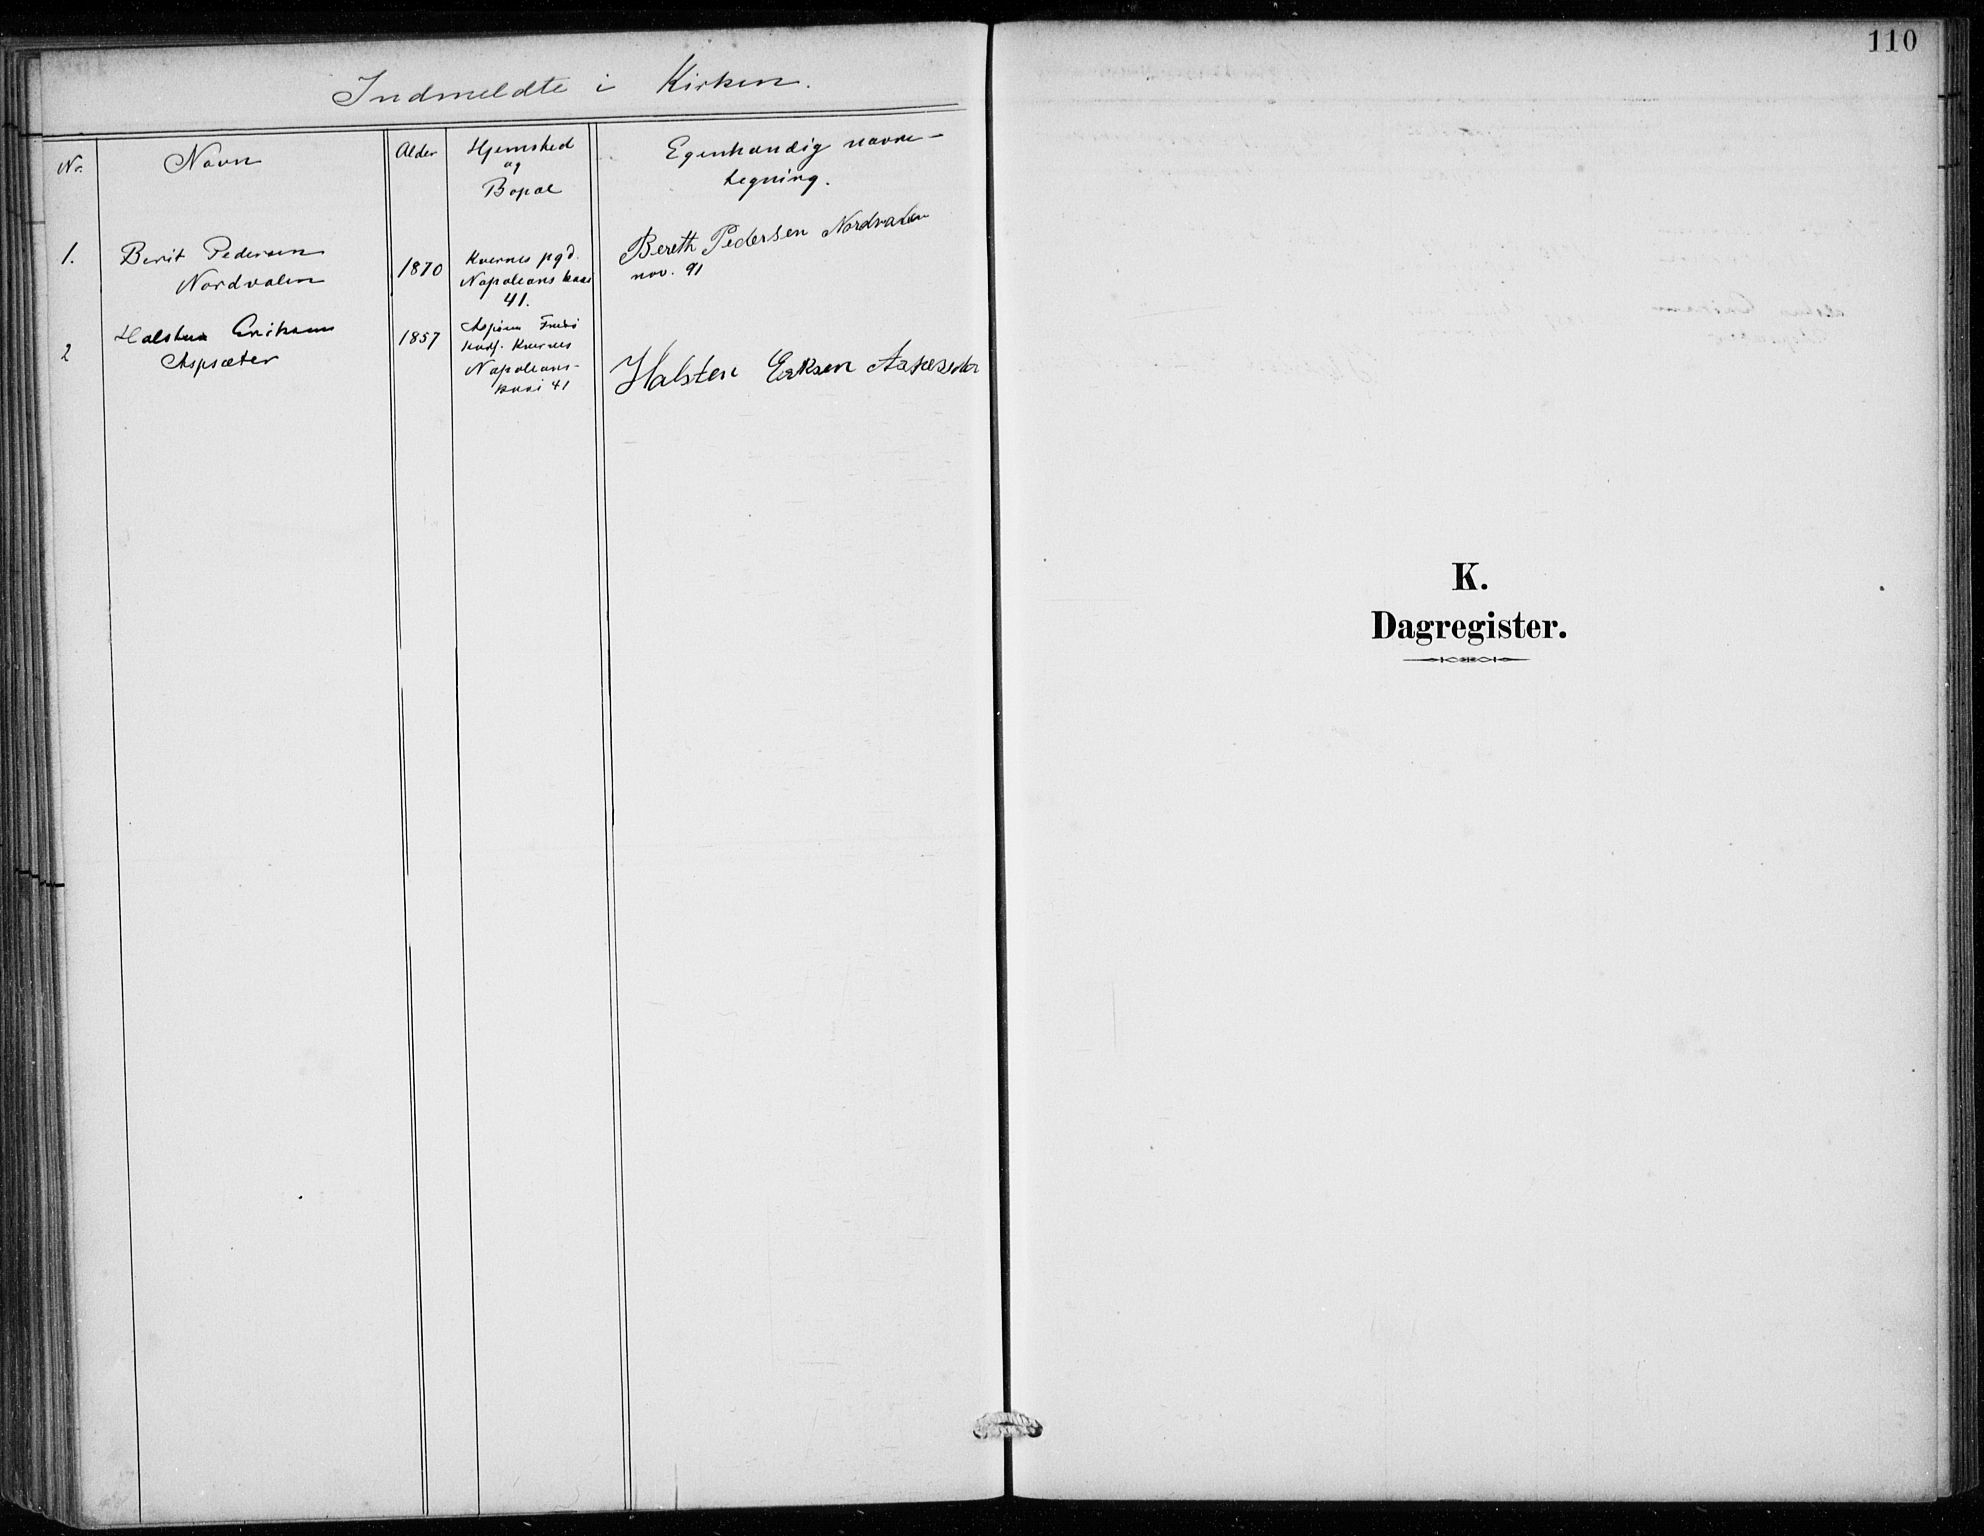 Indmeldte i Kirken.
No.
Navn
Alder
Hjemsted
og
Bopæl
Egenhændig navne-
tegning.
1.
Berit Pedersen
Nordvalen
1870
Kvernes pgd.
Napoleons kaai
41.
Bereth Pedersen Nordvalen
nov. 91
2
Halsten Eriksen
Aspsæter
1857
Kvernes
Napoleons-
kaai 41
Halsten Eriksen
110
K.
Dagregister.